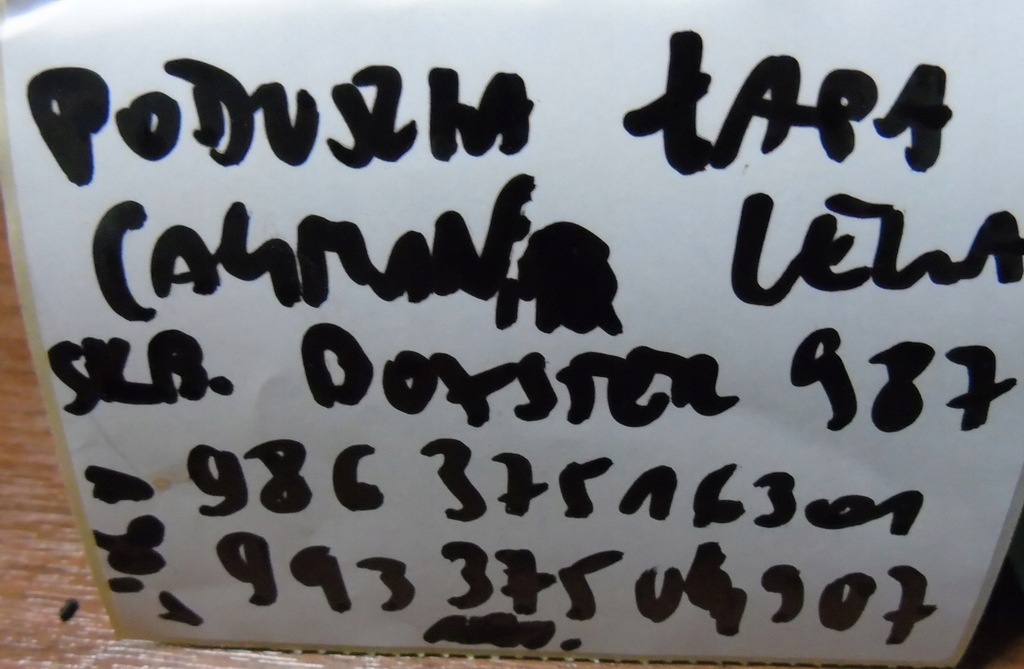 PODUSZKA ŁAPA
CAYMAN LEWA
SKB. BOXSTER 987
986 375 163 01
993 375 049 07